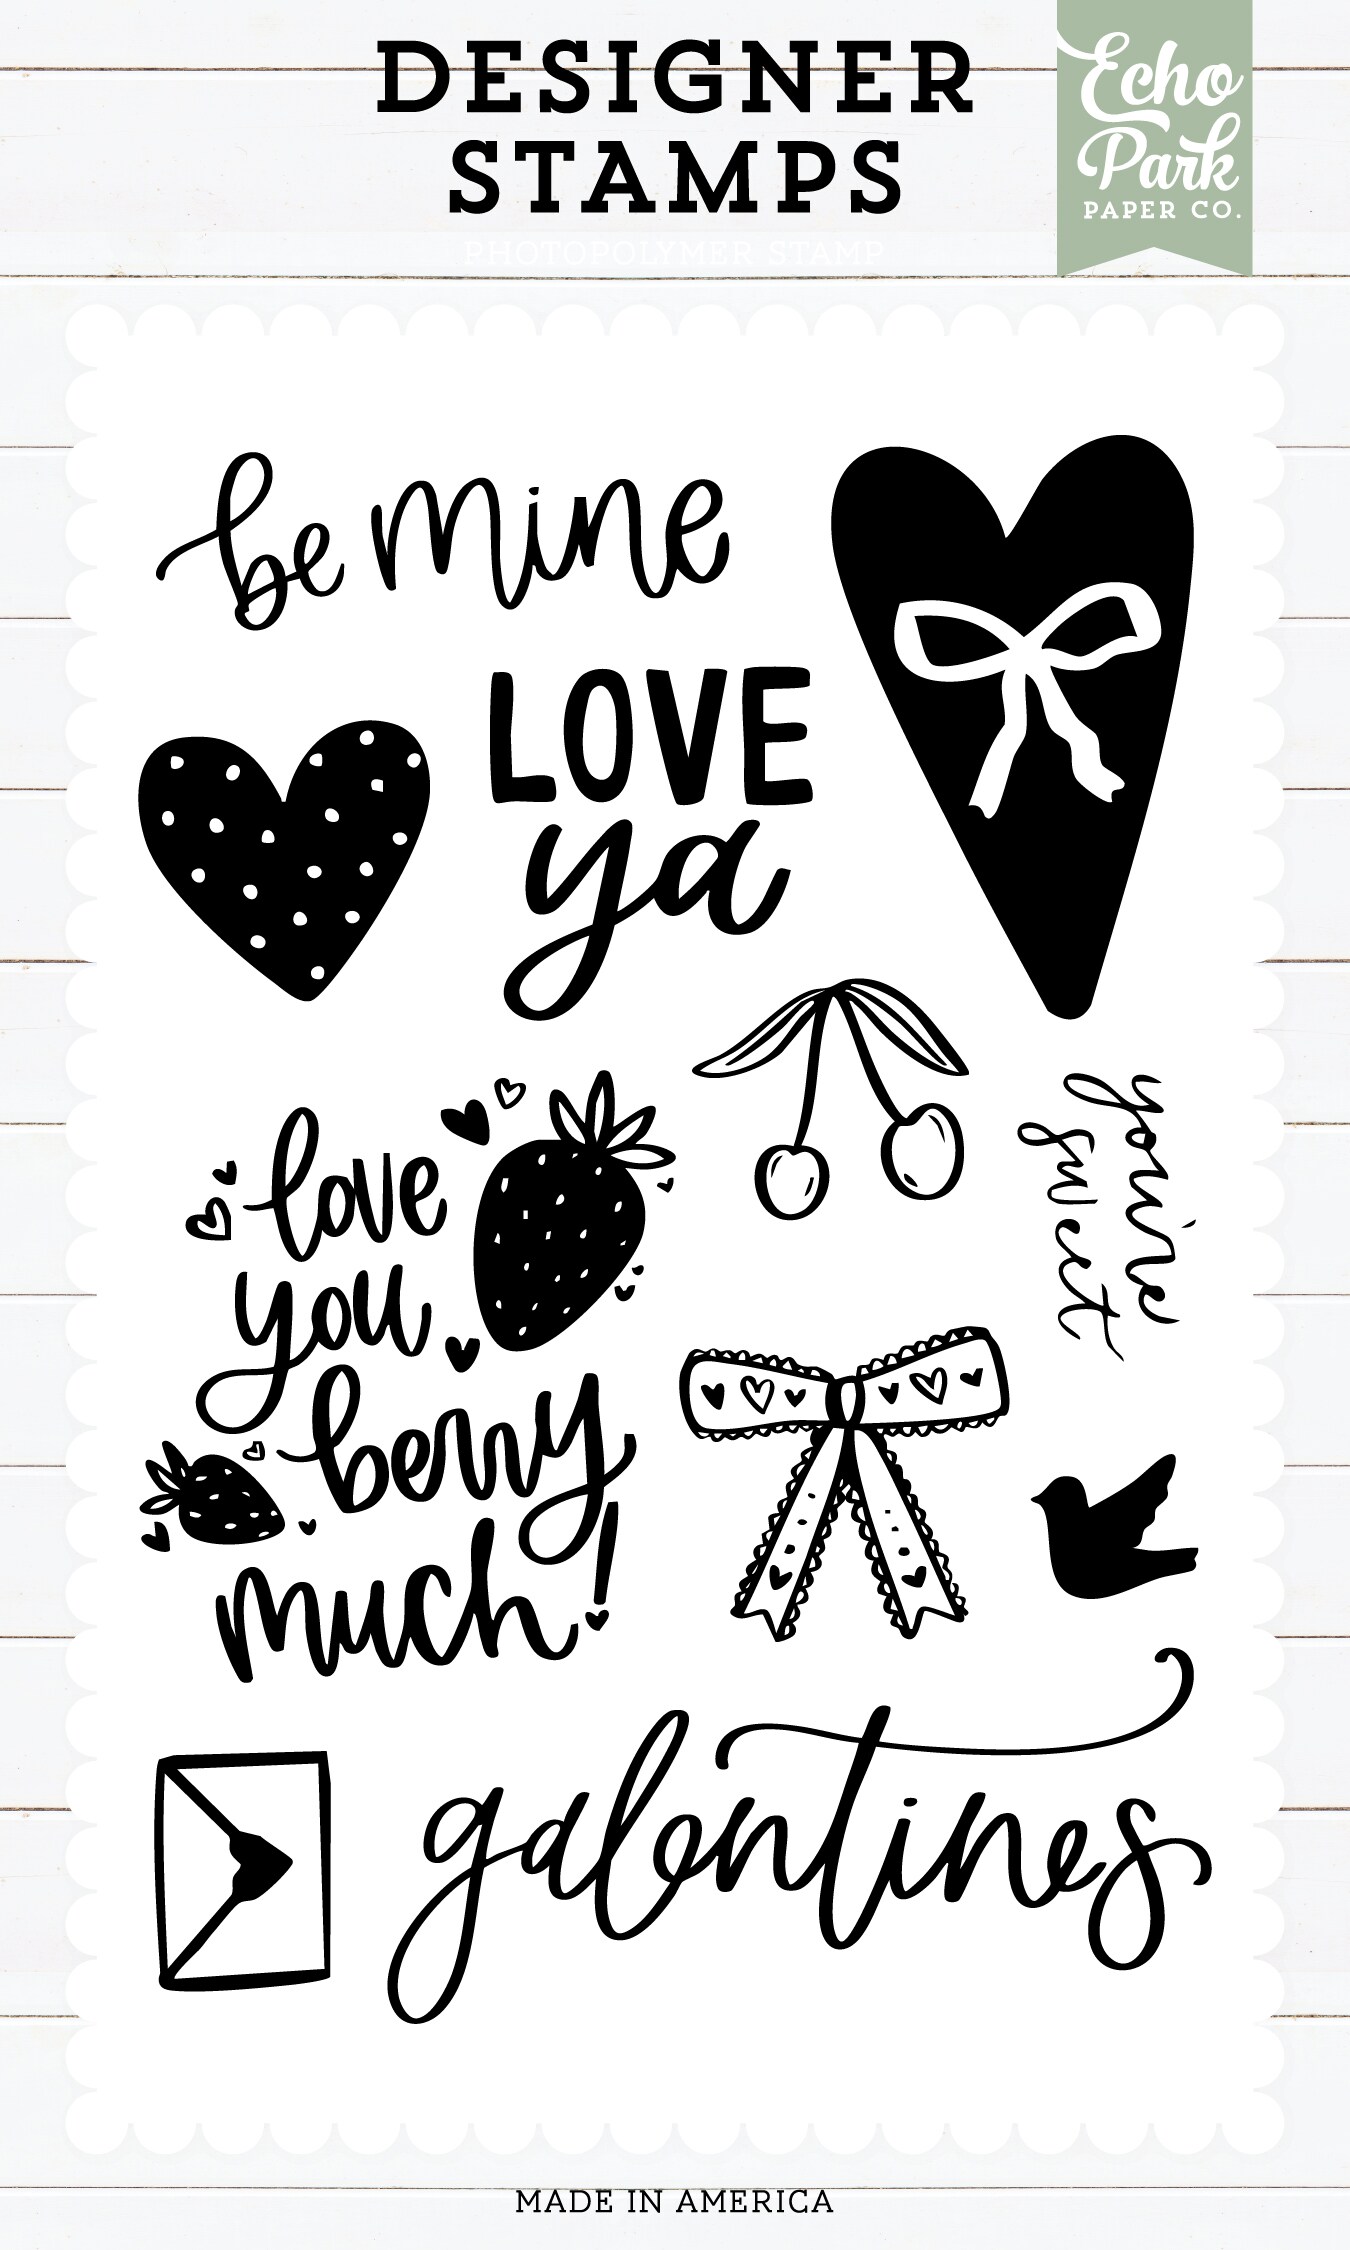 DESIGNER
STAMPS
PHOTOPOLYMER STAMP
Echo
Park
PAPER CO.
be mine
LOVE
ya
you're
sweet
love
you
berry
much!
galentines
MADE IN AMERICA